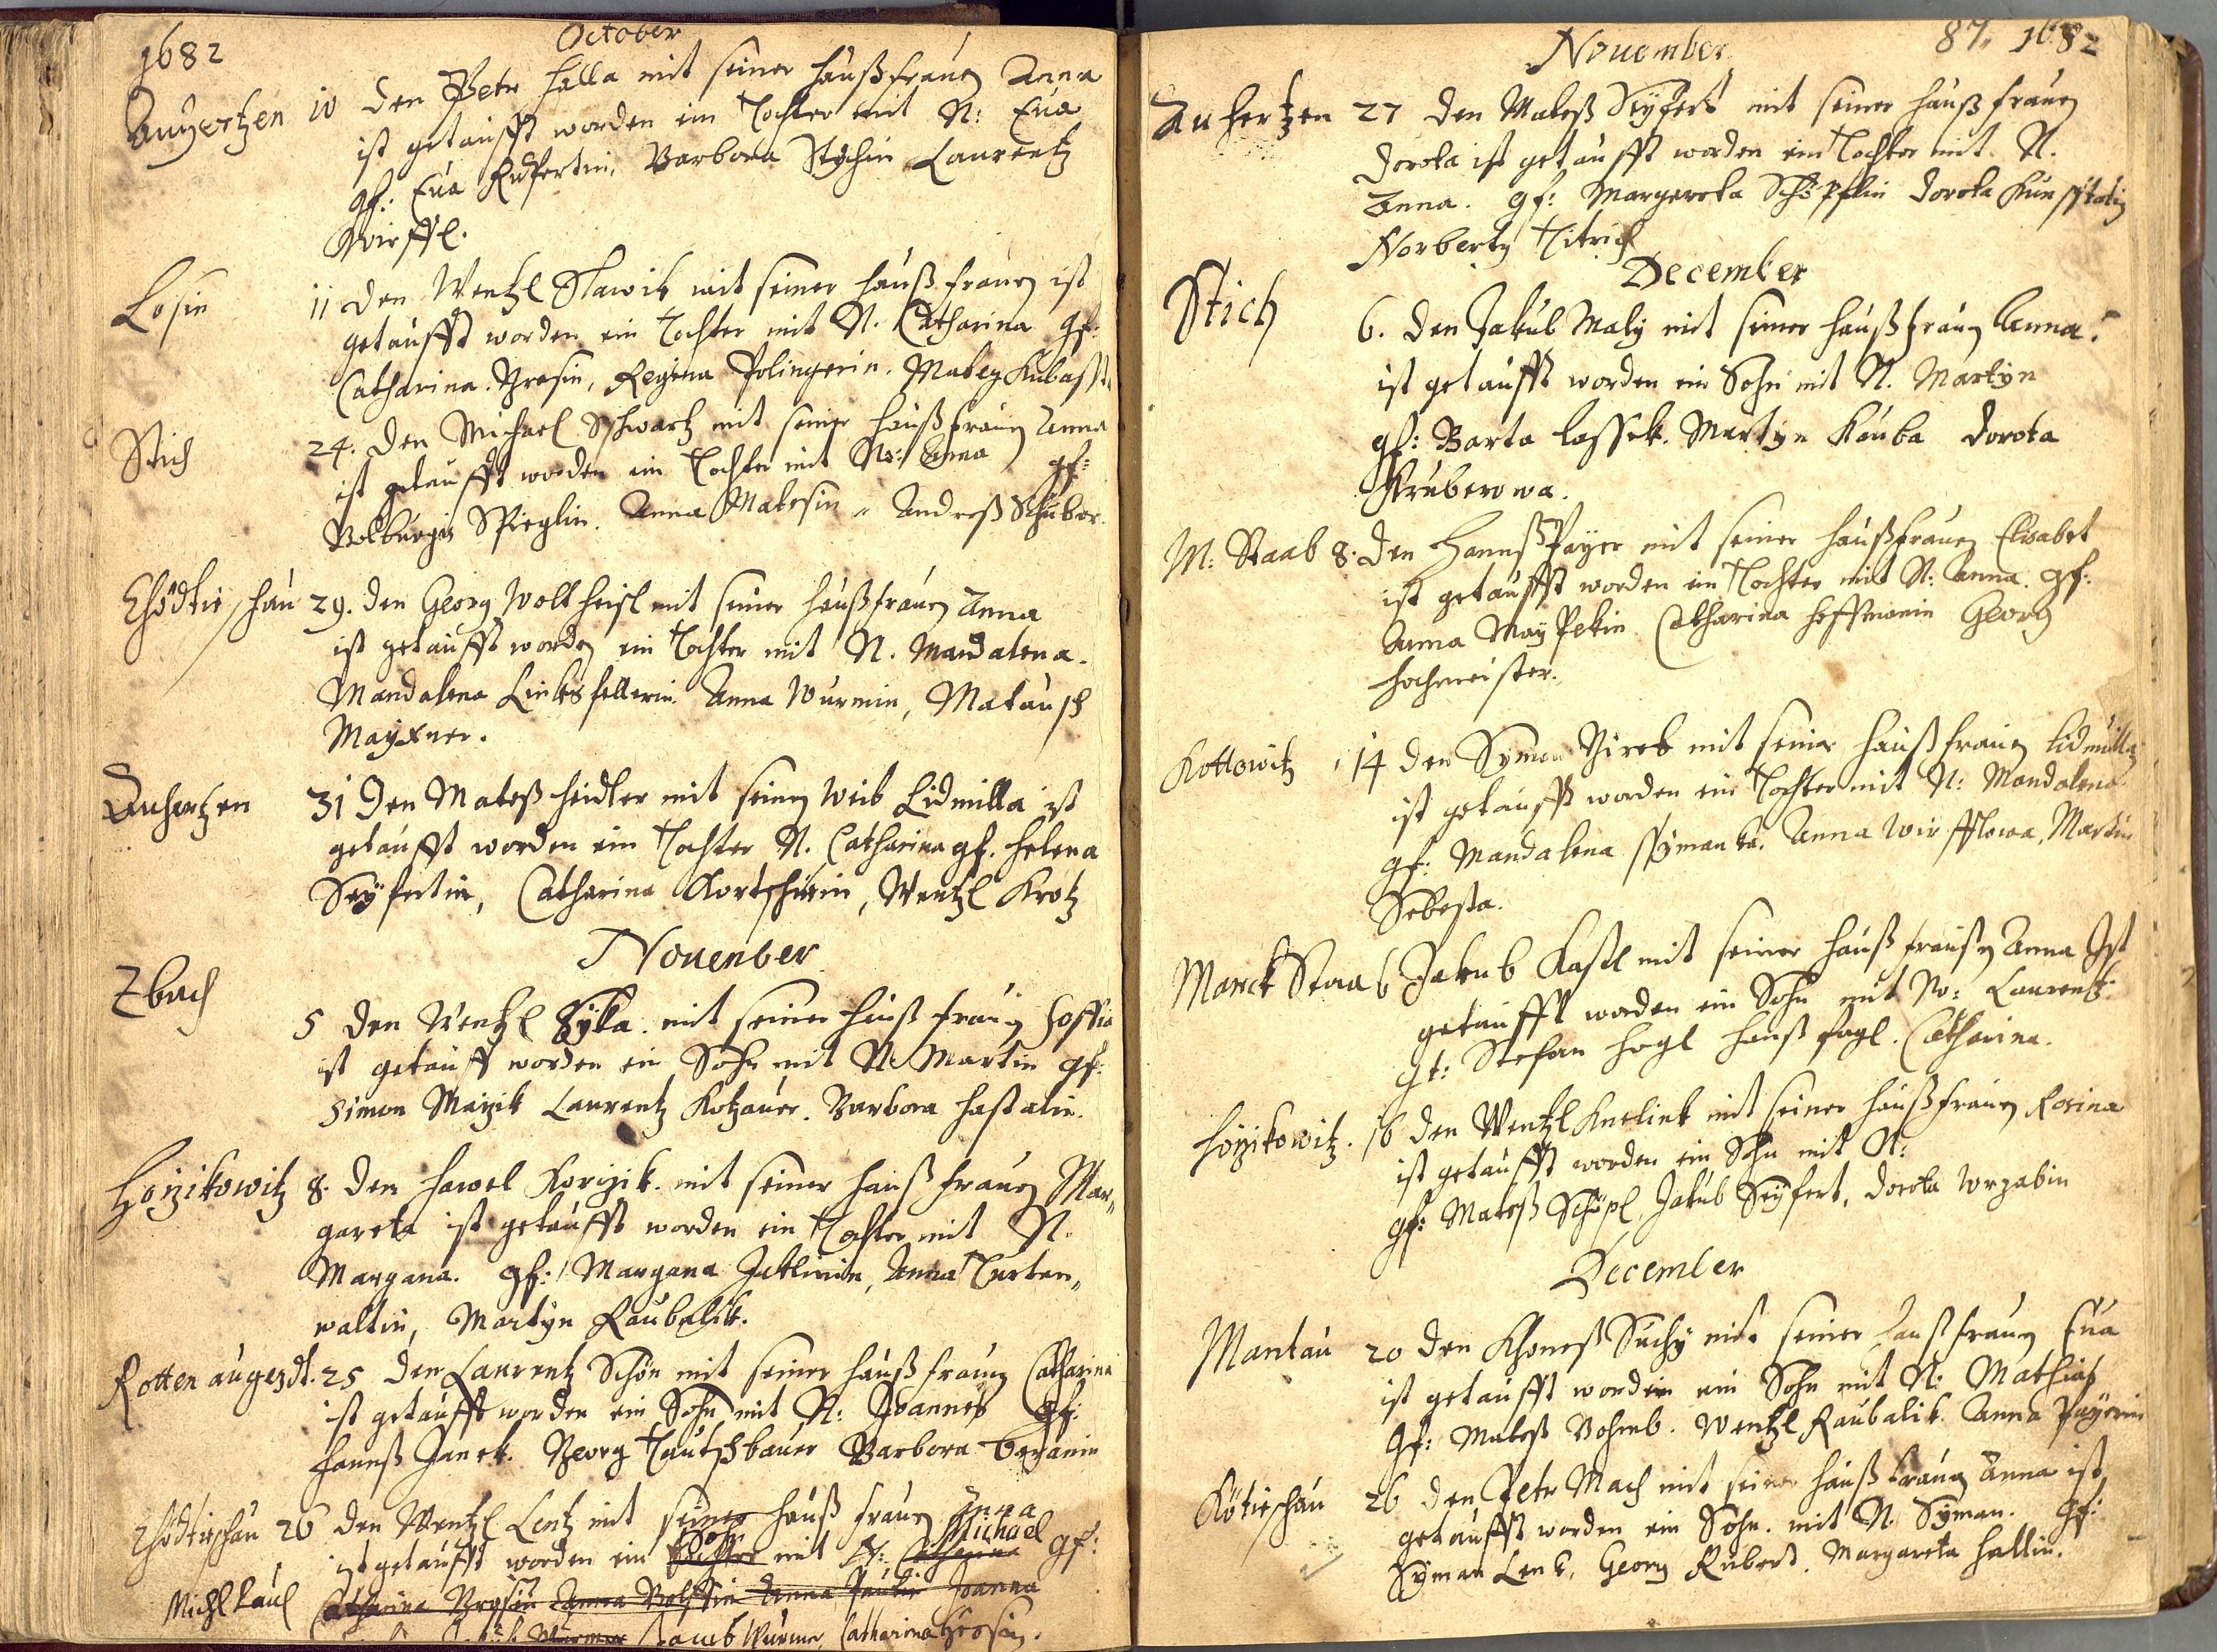 1682
October
Auherzen 10 den Petr Halla mit seiner haußfrauen Anna
ist getaufft worden ein Tochter mit N: Eua
gf: Eua Rupertin, Barbora Stichin Laurentz
Wirffl.
Losin 11 den Wentzl Slawik mit seiner haußfrauen ist
getaufft worden ein Tochter mit N. Catharina gf:
Catharina Brosin, Regina Polingerin. Matey
Stich 24. den Michael Schwartz mit seiner haußfrauen Anna
ist getaufft worden ein Tochter mit No: Anna gf:
Volburgis Spieglin. Anna Matesin Andreß Schubor
Chödtieschau 29. den Georg Woltheisl mit seiner haußfrauen Anna
ist getaufft worden ein Tochter mit N. Mandalena.
Mandalena Linksfellerin. Anna Wurmin, Matausch
Mayxner.
Auhertzen 31 den Mateß heidler mit seinen Weib Lidmilla ist
getaufft worden ein Tochter N. Catharina gf. helena
Seyfertin, Catharina, Wentzl Krotz
Nouember
Zbuch
5 den Wentzl Syka mit seiner haußfrauen Soffia
ist getauff worden ein Sohn mit N. Martin gf:
Simon Maizik Laurentz Kotzauer. Barbora hastalin.
Honzikowitz 8. den Hawel Korizik mit seiner haußfrauen Mar„
gareta ist getaufft worden ein Tochter mit N.
Margana. gf: Margana Jeklinin, Anna Turten„
waltin, Martyn Raubalik.
Rotten augezdt. 25 den Laurentz Schön mit seiner haußfrauen Catharina
ist getaufft worden ein Sohn mit N: Joannes gf:
Hannß Janek. Georg Tautschbauer Barbora
Chödtieschau 26 den Wentzl Lentz mit seiner haußfrauen Anna
Sohn Michael
ist getaufft worden ein Tochter mit N: Catharina gf:
Michl Paul Catharina Brosin Anna Wolffin Anna Paulin Joanna
Wurmer Jacub Wurmer, Catharina Brosin.
Nouember
87. 1682
Auhertzen 27 den Mateß Seyfert mit seiner haußfrauen
Dorota ist getaufft worden ein Tochter mit N.
Anna. gf: Margereta Schöpflin Dorota
Norberty Titrich
December
Stich 6. den Jakub Maly mit seiner haußfrauen Anna.
ist getaufft worden ein Sohn mit N. Martyn
gf: Barta lassek. Martyn Kauba Dorota
Gruberowa.
M: Staab 8. den Hannß Payer mit seiner haußfrauen Elisabet
ist getaufft worden ein Tochter mit N: Anna. gf:
Anna Catharina hoffmanin Georg
hochmeister.
Kottowitz 14 den Symon Zirek mit seiner haußfrauen Lidmilla
ist getaufft worden ein Tochter mit N: Mandalena
gf: Mandalena ssymanka. Anna Wirfflowa, Martin
Sebesta.
Marck Staab Jakub Kastl mit seiner haußfrauen Anna Ist
getaufft worden ein Sohn mit No: Laurentz
gf: Stefan hogl hanß fogl. Catharina.
Honzikowitz. 16 den Wentzl Knelink mit seiner haußfrauen Rosina
ist getaufft worden ein Sohn mit N:
gf: Mateß Schöpl, Jakub Seyfert, Dorota Wrzabin
December
Mantau 20 den Suchy mit seiner haußfrauen Eua
ist getaufft worden ein Sohn mit N: Mathias
gf: Mateß Wentzl Raubalik. Anna Payerin
Kötieschau 26 den Petr Mach mit seiner haußfrauen Anna ist
getaufft worden ein Sohn. mit N. Syman. gf:
Syman Lenk, Georg Rubert. Margareta Hallin.